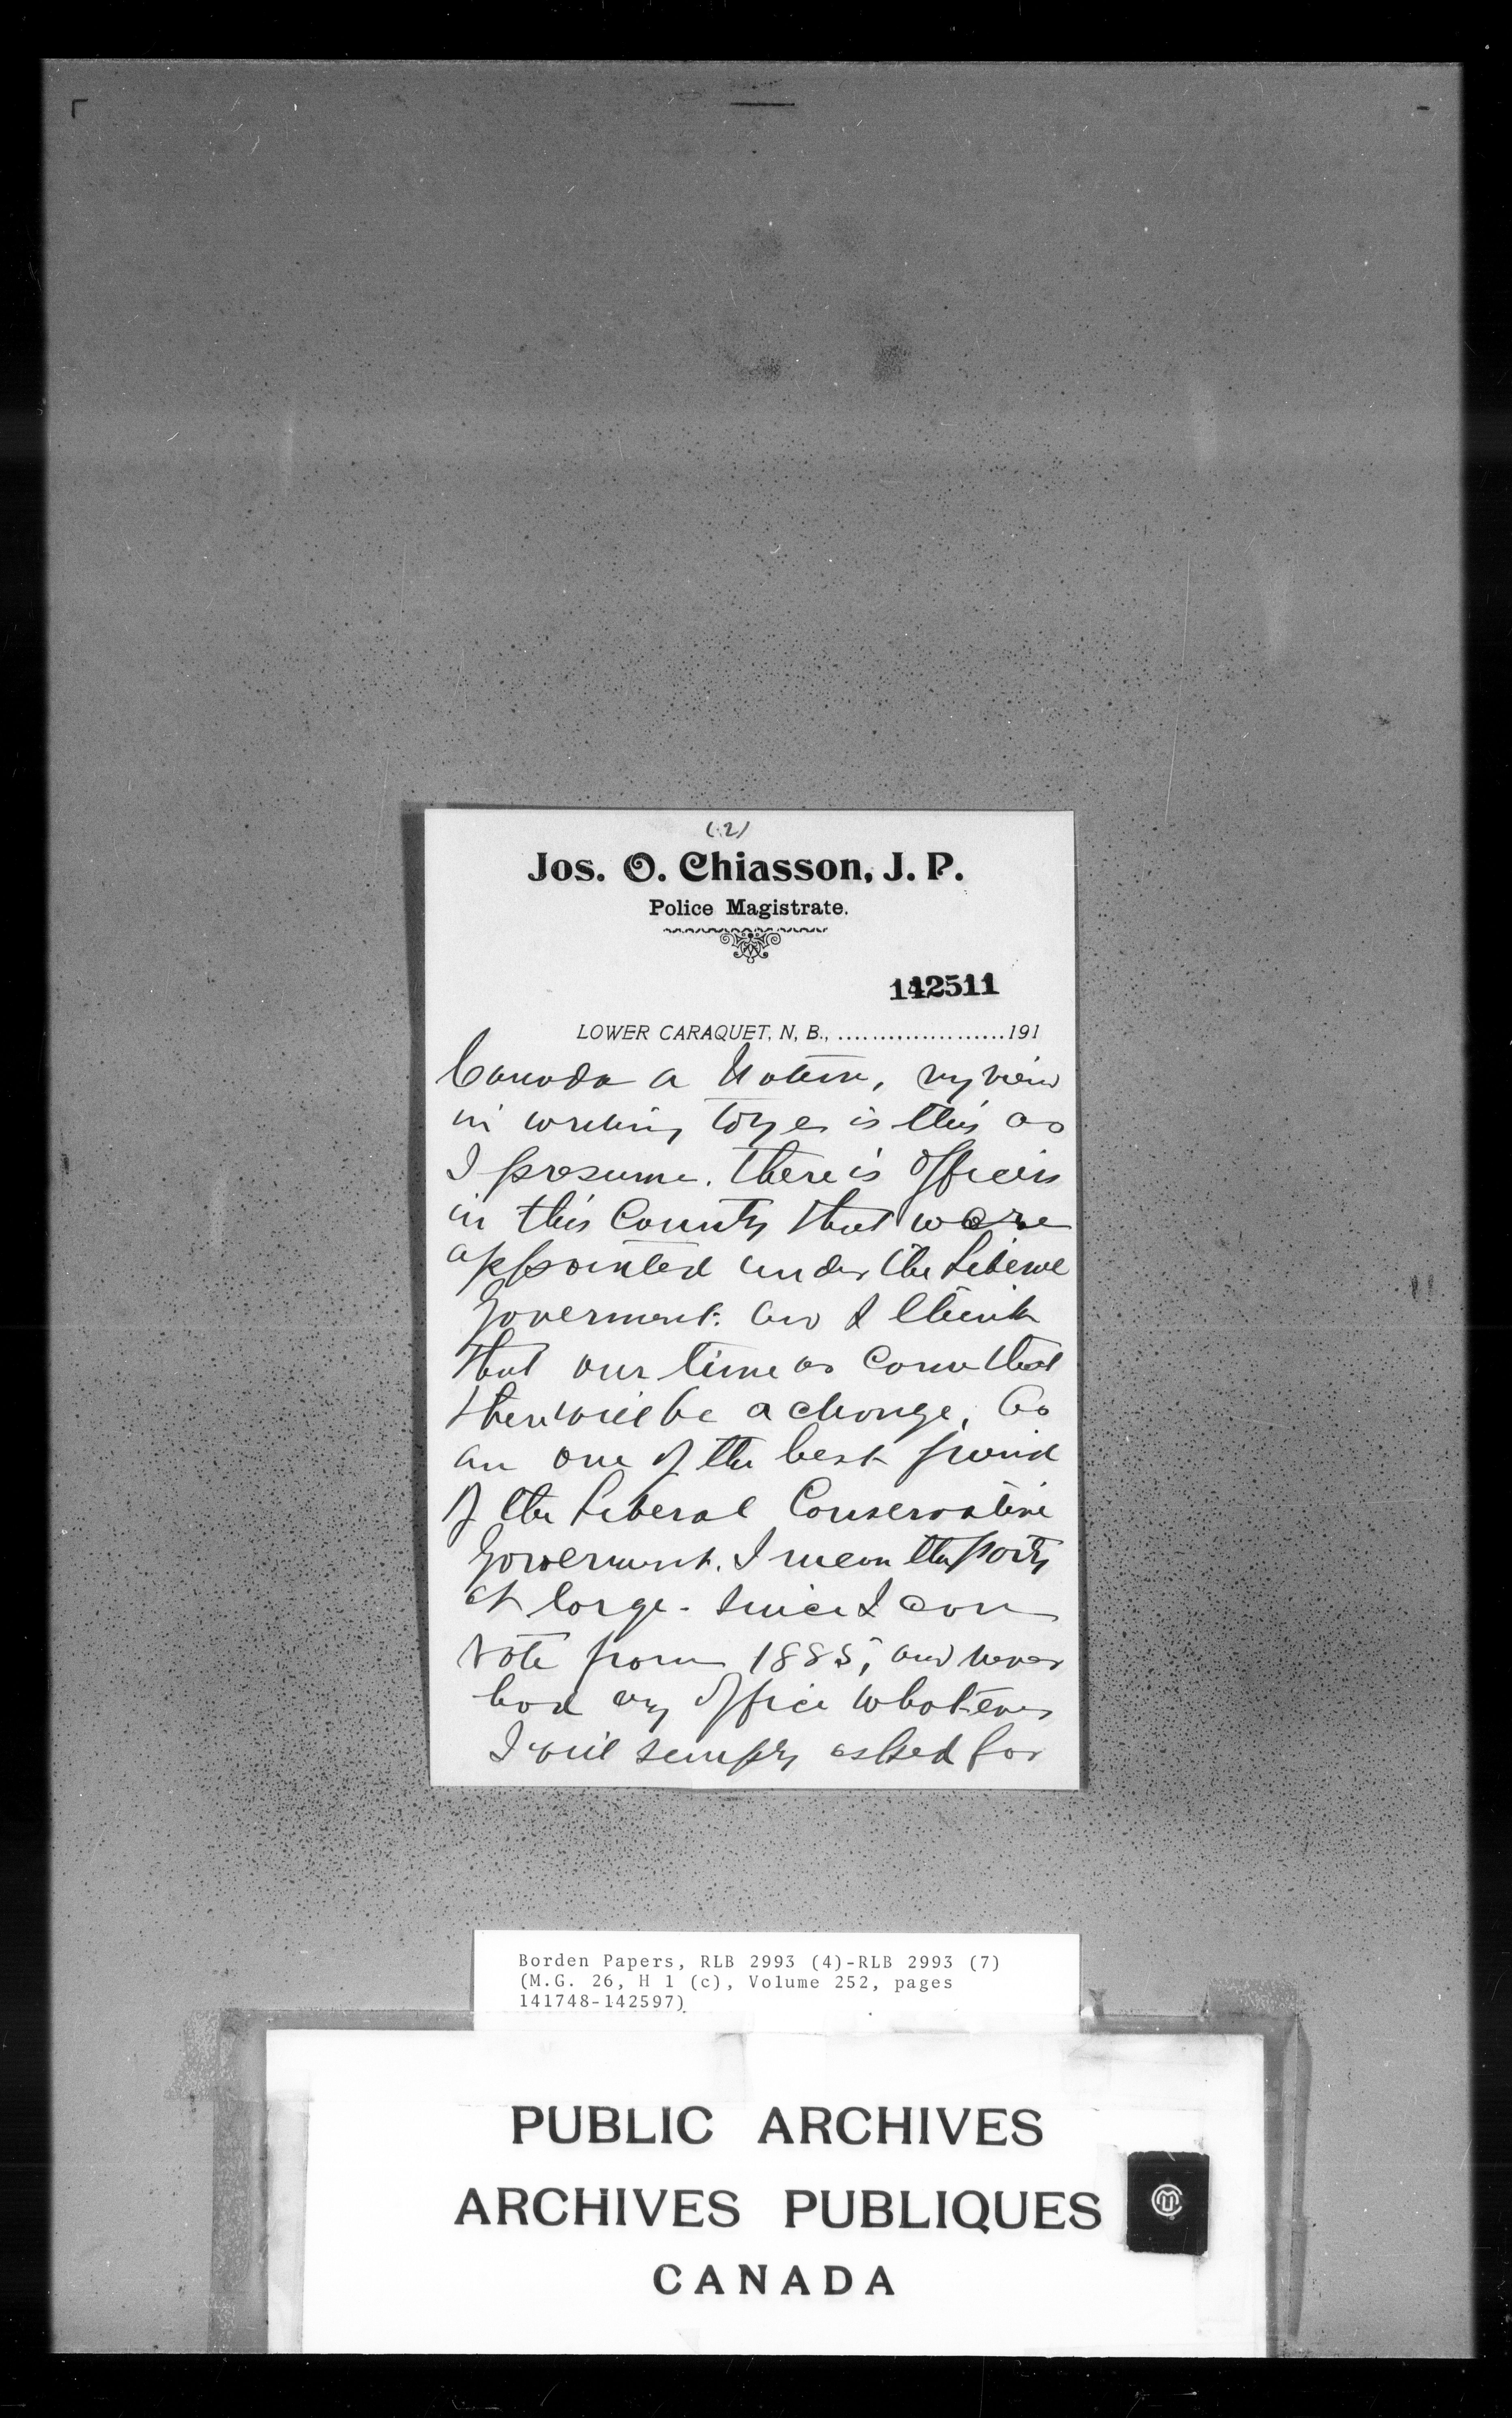 (2)
Jos. O. Chiasson, J. P.
Police Magistrate.
142511
LOWER CARAQUET, N, B., .....................191
Canada a Nation, my view
in writing to you is this as
I presume. there is officers
in this County that were
appointed under the Liberal
Goverment. and I think
that our time as Come that
there will be a change, As
am one of the best friend
of the Liberal Conservative
Goverment. I mean the party
at large - since I can
vote from 1885, and never
had any office whatever
I will simply asked for
Borden Papers, RLB 2993 (4)-RLB 2993 (7)
(M.G. 26, H 1 (c), Volume 252, pages
141748-142597)
PUBLIC ARCHIVES
ARCHIVES PUBLIQUES
CANADA